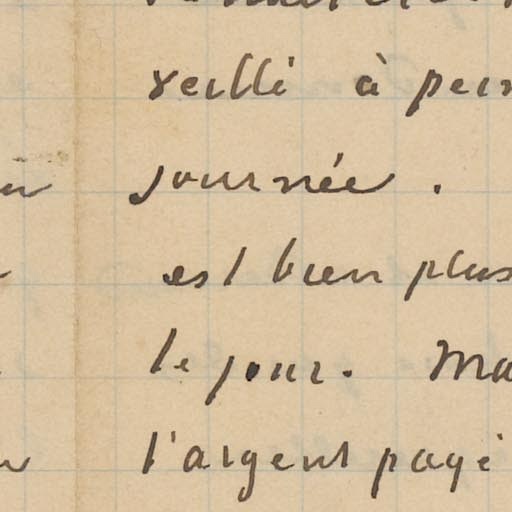 veillé à pein
journée.
est bien plus
le jour. Ma
l'argent payé